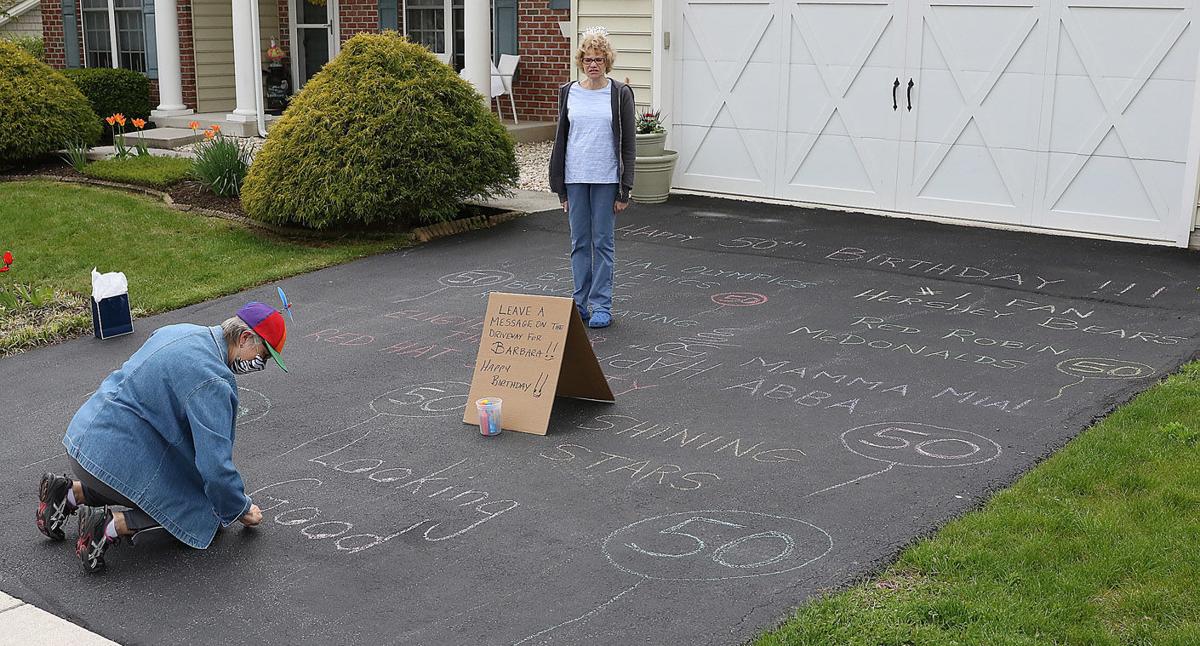 HAPPY 50TH BIRTHDAY!!!
50
OLYMPICS
50
#1 FAN
HERSHEY BEARS
RED ROBIN
MCDONALDS
50
RED HAT
LEAVE A
MESSAGE ON THE
DRIVEWAY FOR
BARBARA!!
HAPPY
BIRTHDAY!!
MAMMA MIA!
ABBA
50
SHINING
STARS
50
Looking
Good
50